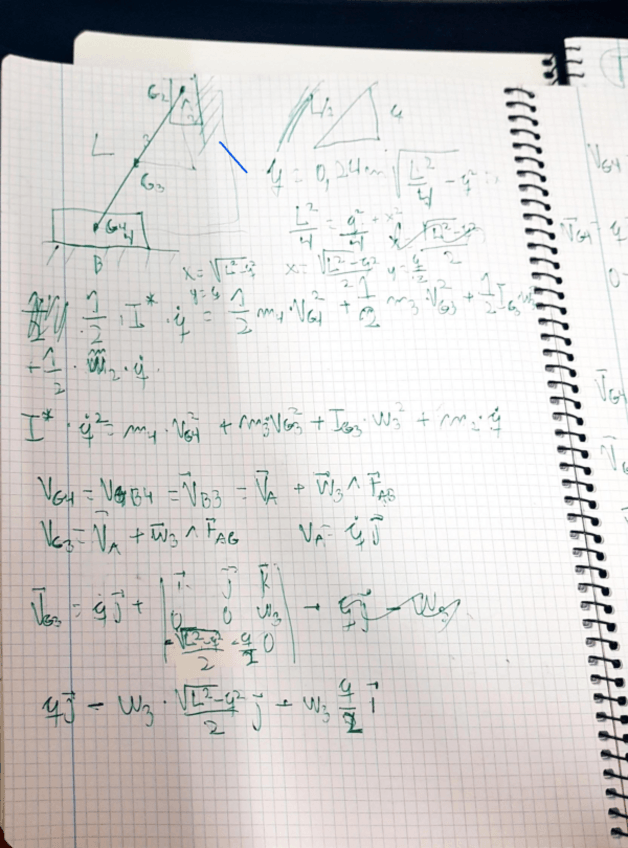 G₂
2
L
3
G₃
G4
4
B
L/2
y
y = 0,24m √(L²/4 - q²)
L²/4 = q²/4 + x²
√(L²-q²)/2
x = √(L²-q²)
x = √(L²-q²)/2 y = q/2
y = q
1/2 · I* · q̇ = 1/2 m₄ · V_G4² + 1/2 m₃ · V_G3² + 1/2 I_G3 w₃²
+ 1/2 · m₂ · q̇.
I* · q̇² = m₄ · V_G4² + m₃ V_G3² + I_G3 · w₃² + m₂ · q̇
V_G4 = V_B4 = V⃗_B3 = V⃗_A + w⃗₃ ∧ r⃗_AB
V_G3 = V⃗_A + w⃗₃ ∧ r⃗_AG V_A = q̇ j⃗
V⃗_G3 = q̇ j⃗ + | i⃗ j⃗ k⃗ |
0 0 w₃
-√(L²-q²)/2 -q/2 0
q j⃗ - w₃
q j⃗ - w₃ · √(L²-q²)/2 j⃗ + w₃ q/2 i⃗
V_G4
V⃗_G4
0
V⃗_G4
V⃗_G